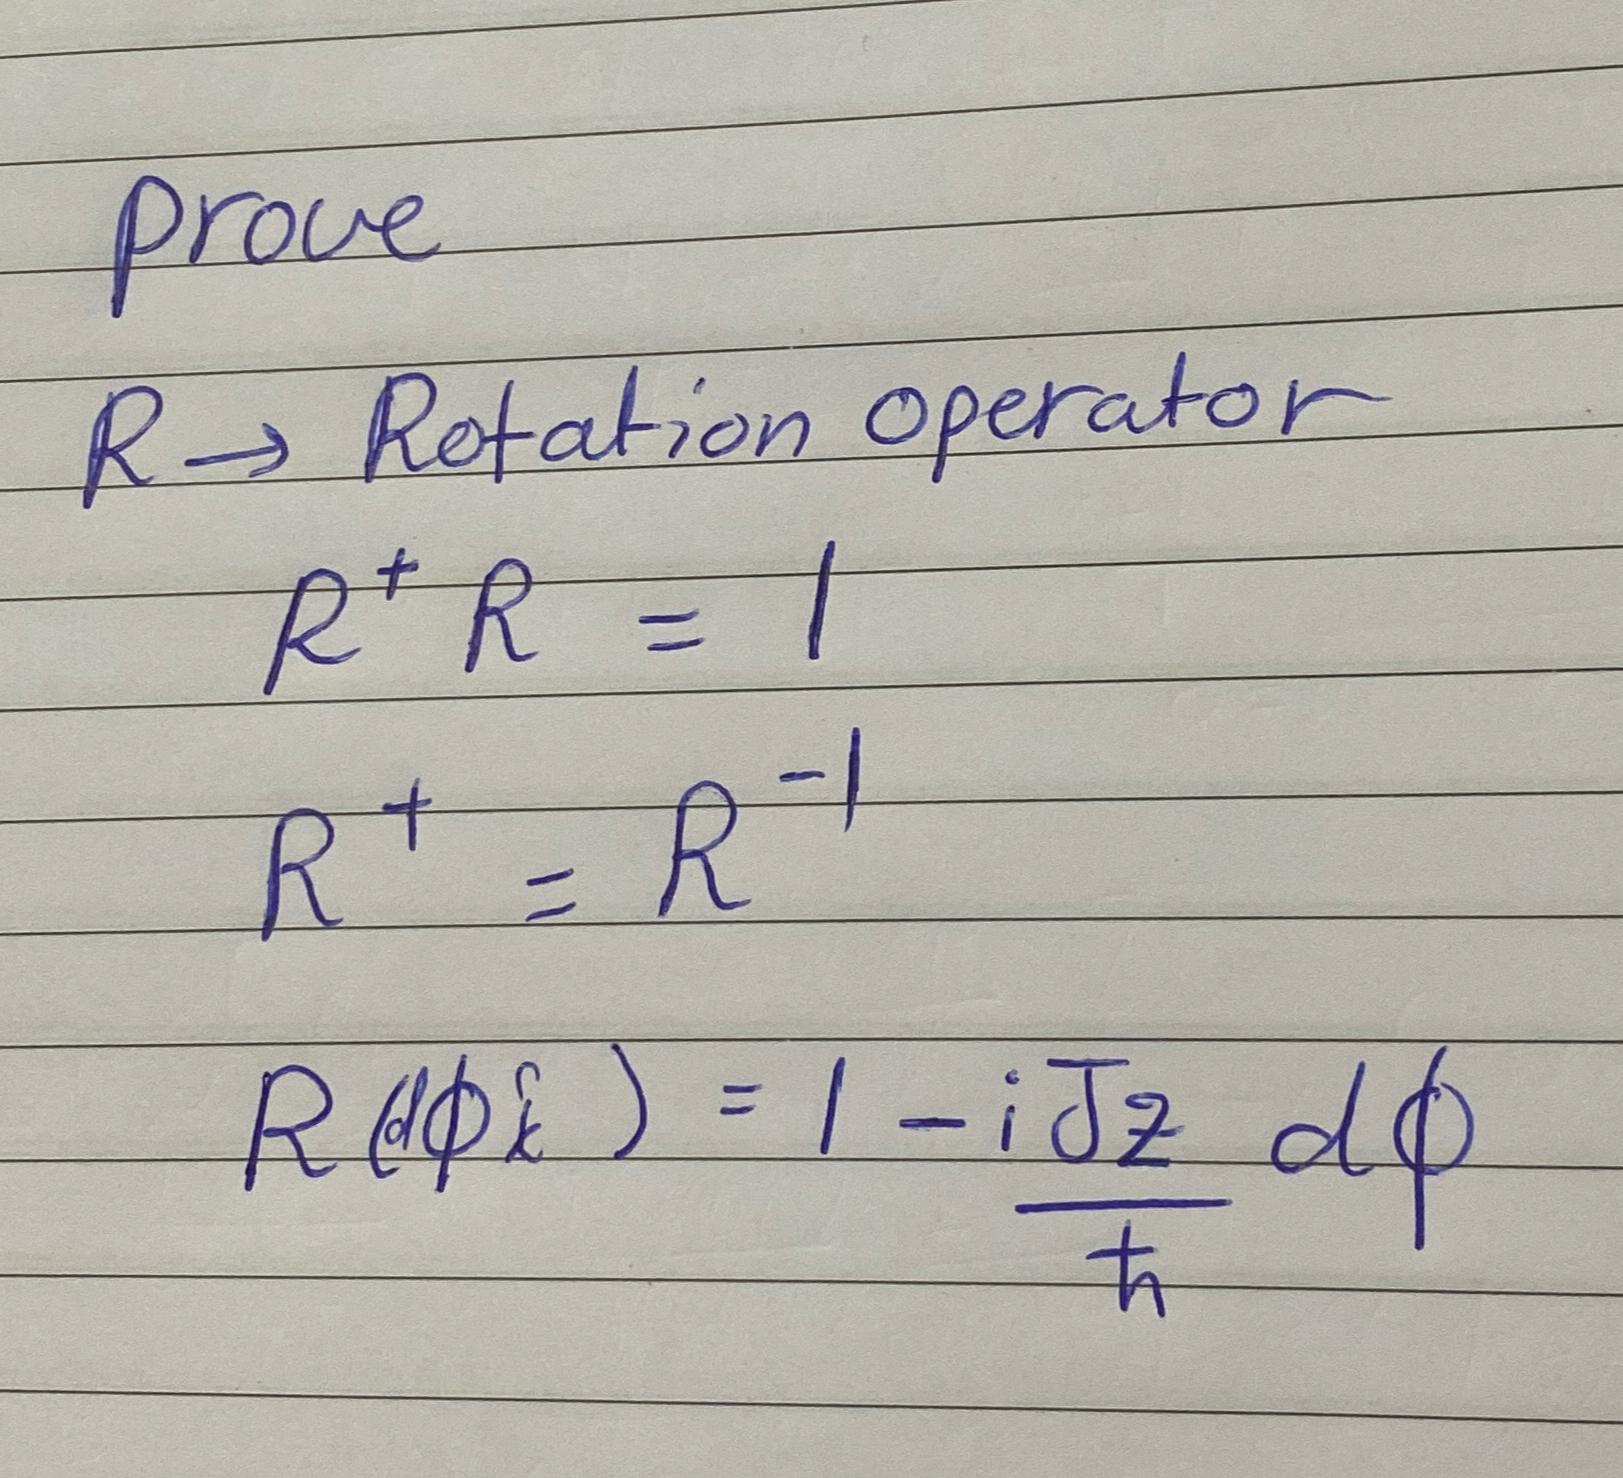 prove
R → Rotation operator
R⁺ R = 1
R⁺ = R⁻¹
R (dϕk̂) = 1 - i Jz/ħ dϕ